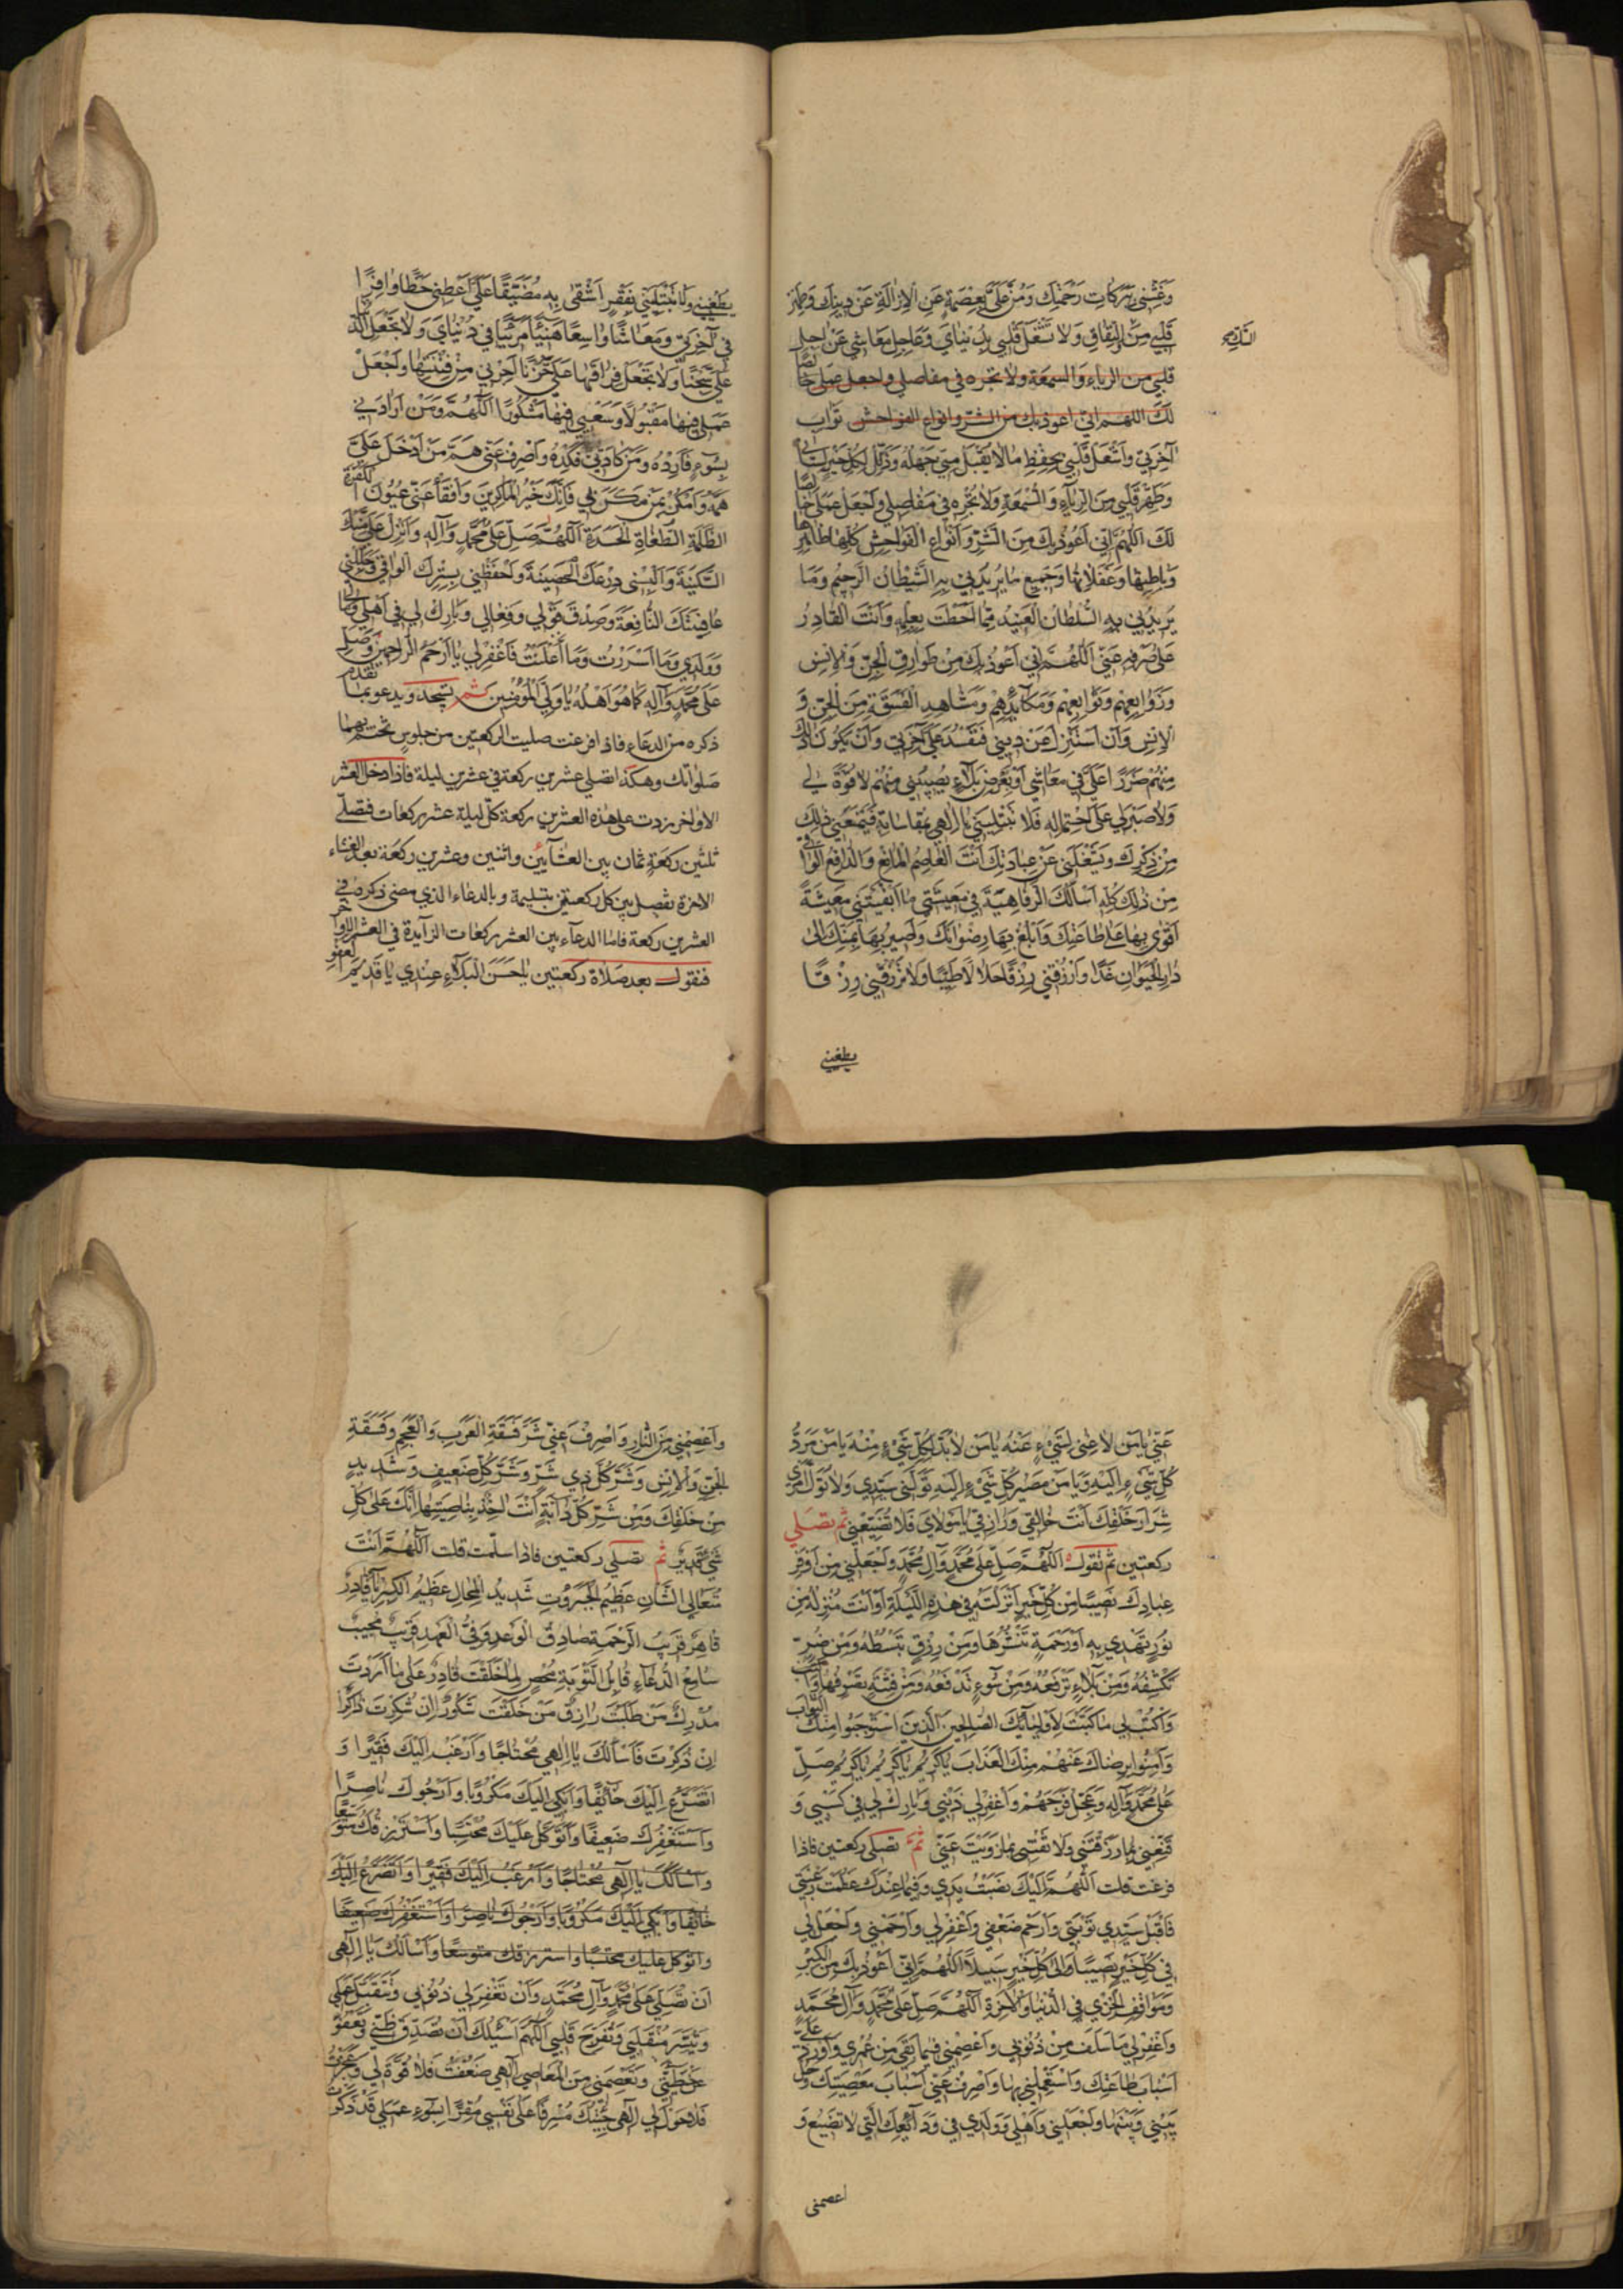 وَغَشِّنِي بَرَكَاتِ رَحْمَتِكَ وَمُنَّ عَلَيَّ بِعِصْمَةٍ عَنِ الْاِزَالَةِ عَنْ دِينِكَ وَطَهِّرْ
قَلْبِي مِنَ النِّفَاقِ وَلَا تَشْغَلْ قَلْبِي بِدُنْيَايَ وَعَاجِلِ مَعَاشِي عَنْ اجِلِ
قلبي من الرياء والسمعة ولا تجره في مفاصلي واجعل عملي خالصًا
لَكَ اللهم اني اعوذ بك من الشر وانواع الفواحش ثَوَابِ
آخِرَتِي وَاشْغَلْ قَلْبِي بِحِفْظِ مَا لَا يُقْبَلُ مِنِّي جَهْلُهُ وَذَلِّلْ لِكُلِّ خَيْرٍ لِسَانِي
وَطَهِّرْ قَلْبِي مِنَ الرِّيَآءِ وَالسُّمْعَةِ وَلَا تُجْرِهِ فِي مَفَاصِلِي وَاجْعَلْ عَمَلِي خَالِصًا
لَكَ اَللّٰهُمَّ اِنِّي اَعُوذُ بِكَ مِنَ الشَّرِّ وَاَنْوَاعِ الْفَوَاحِشِ كُلِّهَا ظَاهِرِهَا
وَبَاطِنِهَا وَغَفَلَاتِهَا وَجَمِيعِ مَا يُرِيدُنِي بِهِ الشَّيْطَانُ الرَّجِيمُ وَمَا
يُرِيدُنِي بِهِ السُّلْطَانُ الْعَنِيدُ مِمَّا اَحَطْتَ بِعِلْمِهِ وَاَنْتَ الْقَادِرُ
عَلَى صَرْفِهِ عَنِّي اَللّٰهُمَّ اِنِّي اَعُوذُ بِكَ مِنْ طَوَارِقِ الْجِنِّ وَالْاِنْسِ
وَزَوَابِعِهِمْ وَتَوَابِعِهِمْ وَمَكَآيِدِهِمْ وَمَشَاهِدِ الْفَسَقَةِ مِنَ الْجِنِّ وَ
الْاِنْسِ وَاَنْ اُسْتَزَلَّ عَنْ دِينِي فَتَفْسُدَ عَلَيَّ آخِرَتِي وَاَنْ يَكُونَ ذٰلِكَ
مِنْهُمْ ضَرَرًا عَلَيَّ فِي مَعَاشِي اَوْ بِعَرَضِ بَلَآءٍ يُصِيبُنِي مِنْهُمْ لَا قُوَّةَ لِي
وَلَا صَبْرَ لِي عَلَى احْتِمَالِهِ فَلَا تَبْتَلِيَنِّي يَا اِلٰهِي بِمُقَاسَاتِهِ فَيَمْنَعَنِي ذٰلِكَ
مِنْ ذِكْرِكَ وَيَشْغَلَنِي عَنْ عِبَادَتِكَ اَنْتَ الْعَاصِمُ الْمَانِعُ وَالدَّافِعُ الْوَاقِي
مِنْ ذٰلِكَ كُلِّهِ اَسْاَلُكَ الرَّفَاهِيَةَ فِي مَعِيشَتِي مَا اَبْقَيْتَنِي مَعِيشَةً
اَقْوٰى بِهَا عَلَى طَاعَتِكَ وَاَبْلُغُ بِهَا رِضْوَانَكَ وَاَصِيرُ بِهَا بِمَنِّكَ اِلٰى
دَارِ الْحَيَوَانِ غَدًا وَارْزُقْنِي رِزْقًا حَلَالًا طَيِّبًا وَلَا تَرْزُقْنِي رِزْقًا
يطغيني
يُطْغِينِي وَلَا تَبْتَلِيَنِّي بِفَقْرٍ اَشْقٰى بِهِ مُضَيِّقًا عَلَيَّ اَعْطِنِي حَظًّا وَافِرًا
فِي آخِرَتِي وَمَعَاشًا وَاسِعًا هَنِيئًا مَرِيئًا فِي دُنْيَايَ وَلَا تَجْعَلِ الدُّنْيَا
عَلَيَّ سِجْنًا وَلَا تَجْعَلْ فِرَاقَهَا عَلَيَّ حُزْنًا اَجِرْنِي مِنْ فِتْنَتِهَا وَاجْعَلْ
عَمَلِي فِيهَا مَقْبُولًا وَسَعْيِي فِيهَا مَشْكُورًا اَللّٰهُمَّ وَمَنْ اَرَادَنِي
بِسُوءٍ فَاَرِدْهُ وَمَنْ كَادَنِي فَكِدْهُ وَاصْرِفْ عَنِّي هَمَّ مَنْ اَدْخَلَ عَلَيَّ
هَمَّهُ وَامْكُرْ بِمَنْ مَكَرَ بِي فَاِنَّكَ خَيْرُ الْمَاكِرِينَ وَافْقَأْ عَنِّي عُيُونَ الْكَفَرَةِ
الظَّلَمَةِ الطُّغَاةِ الْحَسَدَةِ اَللّٰهُمَّ صَلِّ عَلَى مُحَمَّدٍ وَآلِهِ وَاَنْزِلْ عَلَيَّ مِنْكَ
السَّكِينَةَ وَاَلْبِسْنِي دِرْعَكَ الْحَصِينَةَ وَاحْفَظْنِي بِسِتْرِكَ الْوَاقِي وَجَلِّلْنِي
عَافِيَتَكَ النَّافِعَةَ وَصَدِّقْ قَوْلِي وَفِعَالِي وَبَارِكْ لِي فِي اَهْلِي وَمَالِي
وَوَلَدِي وَمَا اَسْرَرْتُ وَمَا اَعْلَنْتُ فَاغْفِرْ لِي يَا اَرْحَمَ الرَّاحِمِينَ وَصَلِّ
عَلَى مُحَمَّدٍ وَآلِهِ كَمَا هُوَ اَهْلُهُ يَا وَلِيَّ الْمُؤْمِنِينَ ثم يسجد ويدعو بما تقدم
ذكره من الدعاء فاذا فرغت صليت الركعتين من جلوس تختم بهما
صلواتك وهكذا تصلي عشرين ركعة في عشرين ليلة فاذا دخل العشر
الاواخر زدت على هذه العشرين ركعة كل ليلة عشر ركعات فتصلّي
ثلثين ركعة ثمان بين العشآئين واثنين وعشرين ركعة بعد العشاء
الاخرة تفصل بين كل ركعتين بتسليمة وبالدعاء الذي مضى ذكره في
العشرين ركعة فاما الدعآء بين العشر ركعات الزآيدة في العشر الاواخر
فتقول بعد صلاة ركعتين يَا حَسَنَ الْبَلَآءِ عِنْدِي يَا قَدِيمَ الْعَفْوِ
عَنِّي يَا مَنْ لَا غِنٰى لِشَيْءٍ عَنْهُ يَا مَنْ لَا بُدَّ لِكُلِّ شَيْءٍ مِنْهُ يَا مَنْ مَرَدُّ
كُلِّ شَيْءٍ اِلَيْهِ وَيَا مَنْ مَصِيرُ كُلِّ شَيْءٍ اِلَيْهِ تَوَلَّنِي سَيِّدِي وَلَا تُوَلِّ اَمْرِي
شِرَارَ خَلْقِكَ اَنْتَ خَالِقِي وَرَازِقِي يَا مَوْلَايَ فَلَا تُضَيِّعْنِي ثم تصلي
ركعتين ثم تقول اَللّٰهُمَّ صَلِّ عَلَى مُحَمَّدٍ وَآلِ مُحَمَّدٍ وَاجْعَلْنِي مِنْ اَوْفَرِ
عِبَادِكَ نَصِيبًا مِنْ كُلِّ خَيْرٍ اَنْزَلْتَهُ فِي هٰذِهِ اللَّيْلَةِ اَوْ اَنْتَ مُنْزِلُهُ مِنْ
نُورٍ تَهْدِي بِهِ اَوْ رَحْمَةٍ تَنْشُرُهَا وَمِنْ رِزْقٍ تَبْسُطُهُ وَمِنْ ضُرٍّ
تَكْشِفُهُ وَمِنْ بَلَآءٍ تَرْفَعُهُ وَمِنْ سُوءٍ تَدْفَعُهُ وَمِنْ فِتْنَةٍ تَصْرِفُهَا
وَاكْتُبْ لِي مَا كَتَبْتَ لِاَوْلِيَآئِكَ الصَّالِحِينَ الَّذِينَ اسْتَوْجَبُوا مِنْكَ الثَّوَابَ
وَآمَنُوا بِرِضَاكَ عَنْهُمْ مِنْكَ الْعَذَابَ يَا كَرِيمُ يَا كَرِيمُ يَا كَرِيمُ صَلِّ
عَلَى مُحَمَّدٍ وَآلِهِ وَعَجِّلْ فَرَجَهُمْ وَاغْفِرْ لِي ذَنْبِي وَبَارِكْ لِي فِي كَسْبِي وَ
قَنِّعْنِي بِمَا رَزَقْتَنِي وَلَا تَفْتِنِّي بِمَا زَوَيْتَ عَنِّي ثم تصلي ركعتين فاذا
فرغت قلت اَللّٰهُمَّ اِلَيْكَ نَصَبْتُ يَدِي وَفِيمَا عِنْدَكَ عَظُمَتْ رَغْبَتِي
فَاقْبَلْ سَيِّدِي تَوْبَتِي وَارْحَمْ ضَعْفِي وَاغْفِرْ لِي وَارْحَمْنِي وَاجْعَلْ لِي
فِي كُلِّ خَيْرٍ نَصِيبًا وَاِلٰى كُلِّ خَيْرٍ سَبِيلًا اَللّٰهُمَّ اِنِّي اَعُوذُ بِكَ مِنَ الْكِبْرِ
وَمَوَاقِفِ الْخِزْيِ فِي الدُّنْيَا وَالْآخِرَةِ اَللّٰهُمَّ صَلِّ عَلَى مُحَمَّدٍ وَآلِ مُحَمَّدٍ
وَاغْفِرْ لِي مَا سَلَفَ مِنْ ذُنُوبِي وَاعْصِمْنِي فِيمَا بَقِيَ مِنْ عُمْرِي وَاَوْرِدْ عَلَيَّ
اَسْبَابَ طَاعَتِكَ وَاسْتَعْمِلْنِي بِهَا وَاصْرِفْ عَنِّي اَسْبَابَ مَعْصِيَتِكَ وَحُلْ
بَيْنِي وَبَيْنَهَا وَاجْعَلْنِي وَاَهْلِي وَوَلَدِي فِي وَدَآئِعِكَ الَّتِي لَا تَضِيعُ وَ
اعصمنى
وَاعْصِمْنِي مِنَ النَّارِ وَاصْرِفْ عَنِّي شَرَّ فَسَقَةِ الْعَرَبِ وَالْعَجَمِ وَفَسَقَةِ
الْجِنِّ وَالْاِنْسِ وَشَرَّ كُلِّ ذِي شَرٍّ وَشَرَّ كُلِّ ضَعِيفٍ وَشَدِيدٍ
مِنْ خَلْقِكَ وَمِنْ شَرِّ كُلِّ دَآبَّةٍ اَنْتَ آخِذٌ بِنَاصِيَتِهَا اِنَّكَ عَلٰى كُلِّ
شَيْءٍ قَدِيرٌ ثم تصلي ركعتين فاذا سلمت قلت اَللّٰهُمَّ اَنْتَ
مُتَعَالِي الشَّانِ عَظِيمُ الْجَبَرُوتِ شَدِيدُ الْمِحَالِ عَظِيمُ الْكِبْرِيَآءِ قَادِرٌ
قَاهِرٌ قَرِيبُ الرَّحْمَةِ صَادِقُ الْوَعْدِ وَفِيُّ الْعَهْدِ قَرِيبٌ مُجِيبٌ
سَامِعُ الدُّعَاءِ قَابِلُ التَّوْبَةِ مُحْصٍ لِمَا خَلَقْتَ قَادِرٌ عَلَى مَا اَرَدْتَ
مُدْرِكٌ مَنْ طَلَبْتَ رَازِقٌ مَنْ خَلَقْتَ شَكُورٌ اِنْ شُكِرْتَ ذَاكِرٌ
اِنْ ذُكِرْتَ فَاَسْاَلُكَ يَا اِلٰهِي مُحْتَاجًا وَاَرْغَبُ اِلَيْكَ فَقِيرًا وَ
اَتَضَرَّعُ اِلَيْكَ خَآئِفًا وَاَبْكِي اِلَيْكَ مَكْرُوبًا وَاَرْجُوكَ نَاصِرًا
وَاَسْتَغْفِرُكَ ضَعِيفًا وَاَتَوَكَّلُ عَلَيْكَ مُحْتَسِبًا وَاَسْتَرْزِقُكَ مُتَوَسِّعًا
وَاَسْاَلُكَ يَا اِلٰهِي مُحْتَاجًا وَاَرْغَبُ اِلَيْكَ فَقِيرًا وَاَتَضَرَّعُ اِلَيْكَ
خَائِفًا وَاَبْكِي اِلَيْكَ مَكْرُوبًا وَاَرْجُوكَ نَاصِرًا وَاَسْتَغْفِرُكَ ضَعِيفًا
واتوكل عليك محتسبًا واسترزقك متوسعًا وَاَسْاَلُكَ يَا اِلٰهِى
اَنْ تُصَلِّيَ عَلَى مُحَمَّدٍ وَآلِ مُحَمَّدٍ وَاَنْ تَغْفِرَ لِي ذُنُوبِي وَتَتَقَبَّلَ عَمَلِي
وَتُيَسِّرَ مُنْقَلَبِي وَتُفَرِّحَ قَلْبِي اَللّٰهُمَّ اَسْئَلُكَ اَنْ تُصَدِّقَ ظَنِّي وَتَعْفُوَ
عَنْ خَطِيئَتِي وَتَعْصِمَنِي مِنَ الْمَعَاصِي اِلٰهِي ضَعُفْتُ فَلَا قُوَّةَ لِي وَعَجَزْتُ
فَلَا حَوْلَ لِي اِلٰهِي جِئْتُكَ مُسْرِفًا عَلَى نَفْسِي مُقِرًّا بِسُوءِ عَمَلِي قَدْ ذَكَرْتُ